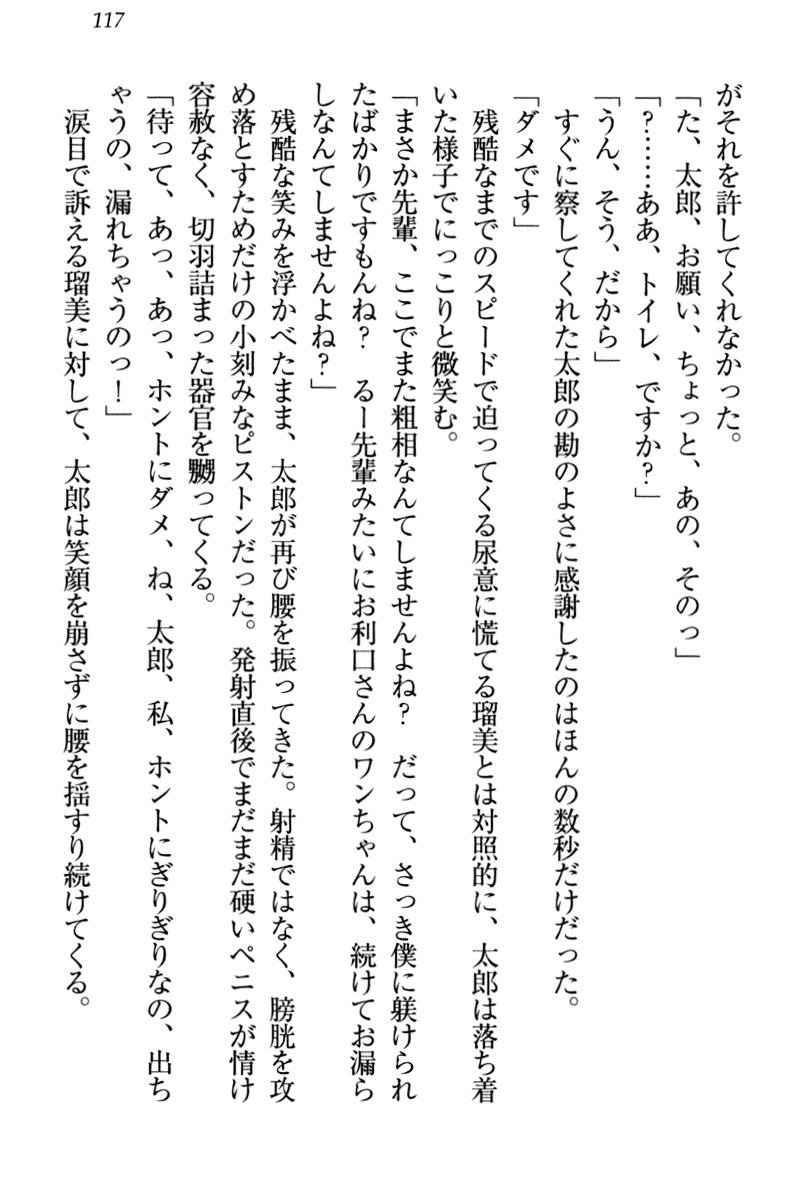 117
がそれを許してくれなかった。
「た、太郎、お願い、ちょっと、あの、そのっ」
「?……ああ、トイレ、ですか?」
「うん、そう、だから」
すぐに察してくれた太郎の勘のよさに感謝したのはほんの数秒だけだった。
「ダメです」
残酷なまでのスピードで迫ってくる尿意に慌てる瑠美とは対照的に、太郎は落ち着
いた様子でにっこりと微笑む。
「まさか先輩、ここでまた粗相なんてしませんよね? だって、さっき僕に躾けられ
たばかりですもんね? るー先輩みたいにお利口さんのワンちゃんは、続けてお漏ら
しなんてしませんよね?」
残酷な笑みを浮かべたまま、太郎が再び腰を振ってきた。射精ではなく、膀胱を攻
め落とすためだけの小刻みなピストンだった。発射直後でまだまだ硬いペニスが情け
容赦なく、切羽詰まった器官を嬲ってくる。
「待って、あっ、あっ、ホントにダメ、ね、太郎、私、ホントにぎりぎりなの、出ち
ゃうの、漏れちゃうのっ!」
涙目で訴える瑠美に対して、太郎は笑顔を崩さずに腰を揺すり続けてくる。